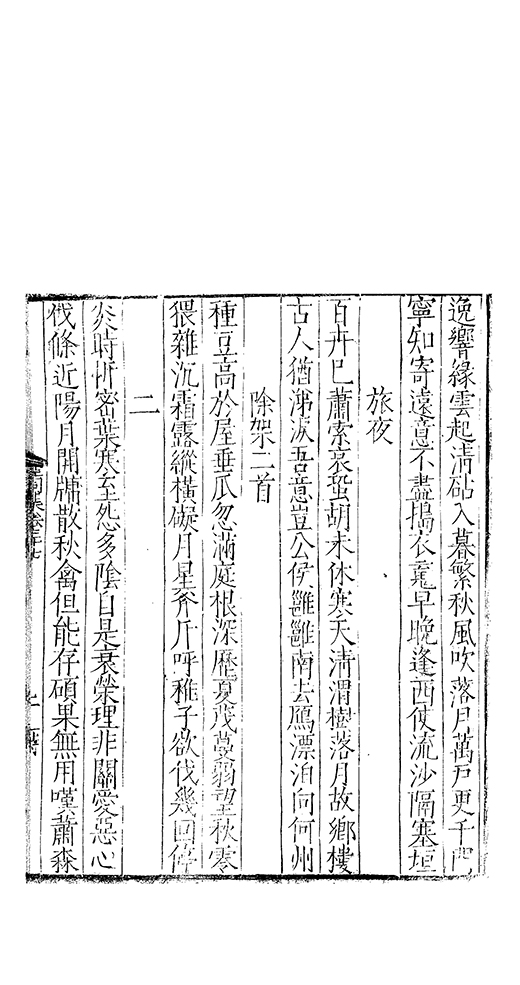 逸響緣雲起清砧入暮繁秋風吹落月萬戶更千門
寧知寄遠意不盡搗衣寃早晚逢西使流沙隔塞垣
旅夜
百卉巳蕭索哀蛩胡未休寒天清渭樹落月故鄉樓
古人猶涕淚吾意豈公侯雝雝南去鴈漂泊向何州
除架二首
種豆高於屋垂瓜忽滿庭根深歷夏茂蔓弱望秋零
猥雜沉霜露縱橫礙月星斧斤呼稚子欲伐幾回停
二
炎時忻密葉寒至怨多陰自是衰榮理非關愛惡心
伐條近陽月開牖散秋禽但能存碩果無用嘆蕭森